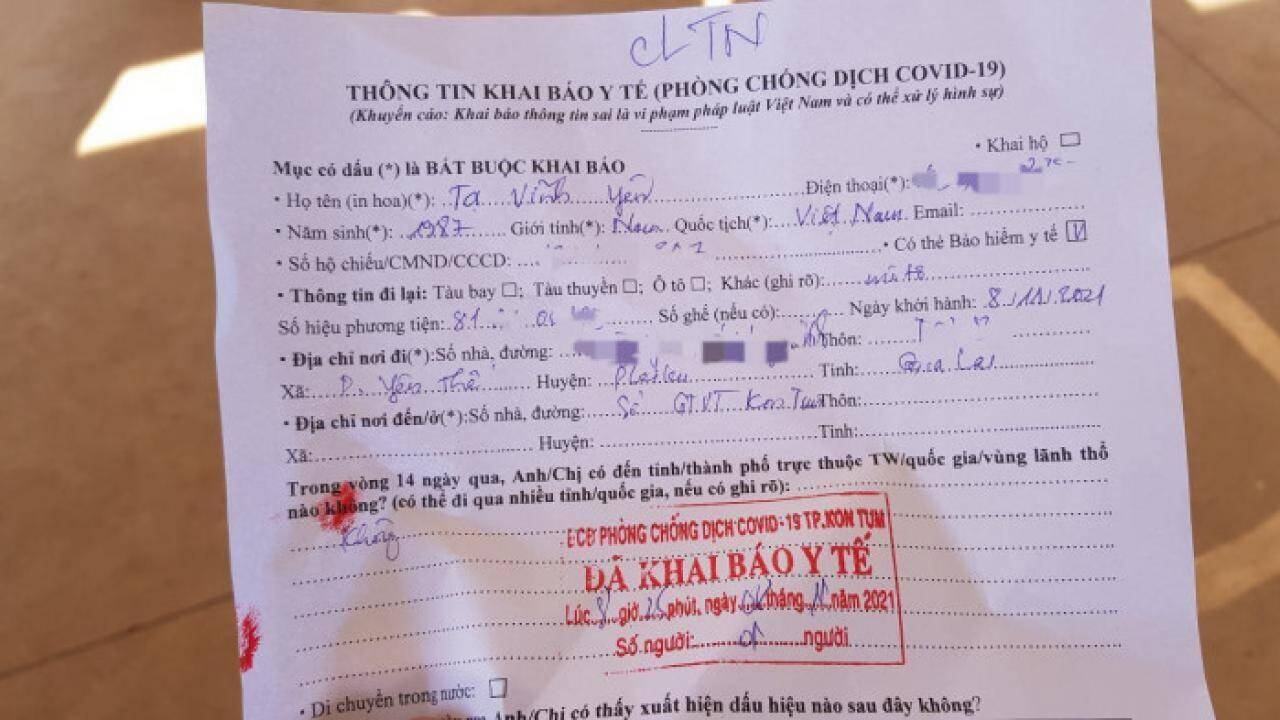 CLTN
THÔNG TIN KHAI BÁO Y TẾ (PHÒNG CHỐNG DỊCH COVID-19)
(Khuyến cáo: Khai báo thông tin sai là vi phạm pháp luật Việt Nam và có thể xử lý hình sự)
• Khai hộ
Mục có dấu (*) là BẮT BUỘC KHAI BÁO
• Họ tên (in hoa)(*): Tạ Vĩnh Yên Điện thoại(*):
• Năm sinh(*): 1987 Giới tính(*): Nam Quốc tịch(*): Việt Nam Email:
• Số hộ chiếu/CMND/CCCD: • Có thẻ Bảo hiểm y tế
• Thông tin đi lại: Tàu bay ; Tàu thuyền ; Ô tô ; Khác (ghi rõ):
Số hiệu phương tiện: 81 Số ghế (nếu có): Ngày khởi hành: 8/11/2021
• Địa chỉ nơi đi(*):Số nhà, đường: Thôn:
Xã: P. Yên Thế Huyện: Pleiku Tỉnh: Gia Lai
• Địa chỉ nơi đến/ở(*):Số nhà, đường: Sở GTVT Kon Tum Thôn:
Xã: Huyện: Tỉnh:
Trong vòng 14 ngày qua, Anh/Chị có đến tỉnh/thành phố trực thuộc TW/quốc gia/vùng lãnh thổ
nào không? (có thể đi qua nhiều tỉnh/quốc gia, nếu có ghi rõ):
Không
BCĐ PHÒNG CHỐNG DỊCH COVID-19 TP.KON TUM
ĐÃ KHAI BÁO Y TẾ
Lúc 8 giờ 25 phút, ngày tháng 11 năm 2021
Số người: 01 người
• Di chuyển trong nước:
Anh/Chị có thấy xuất hiện dấu hiệu nào sau đây không?